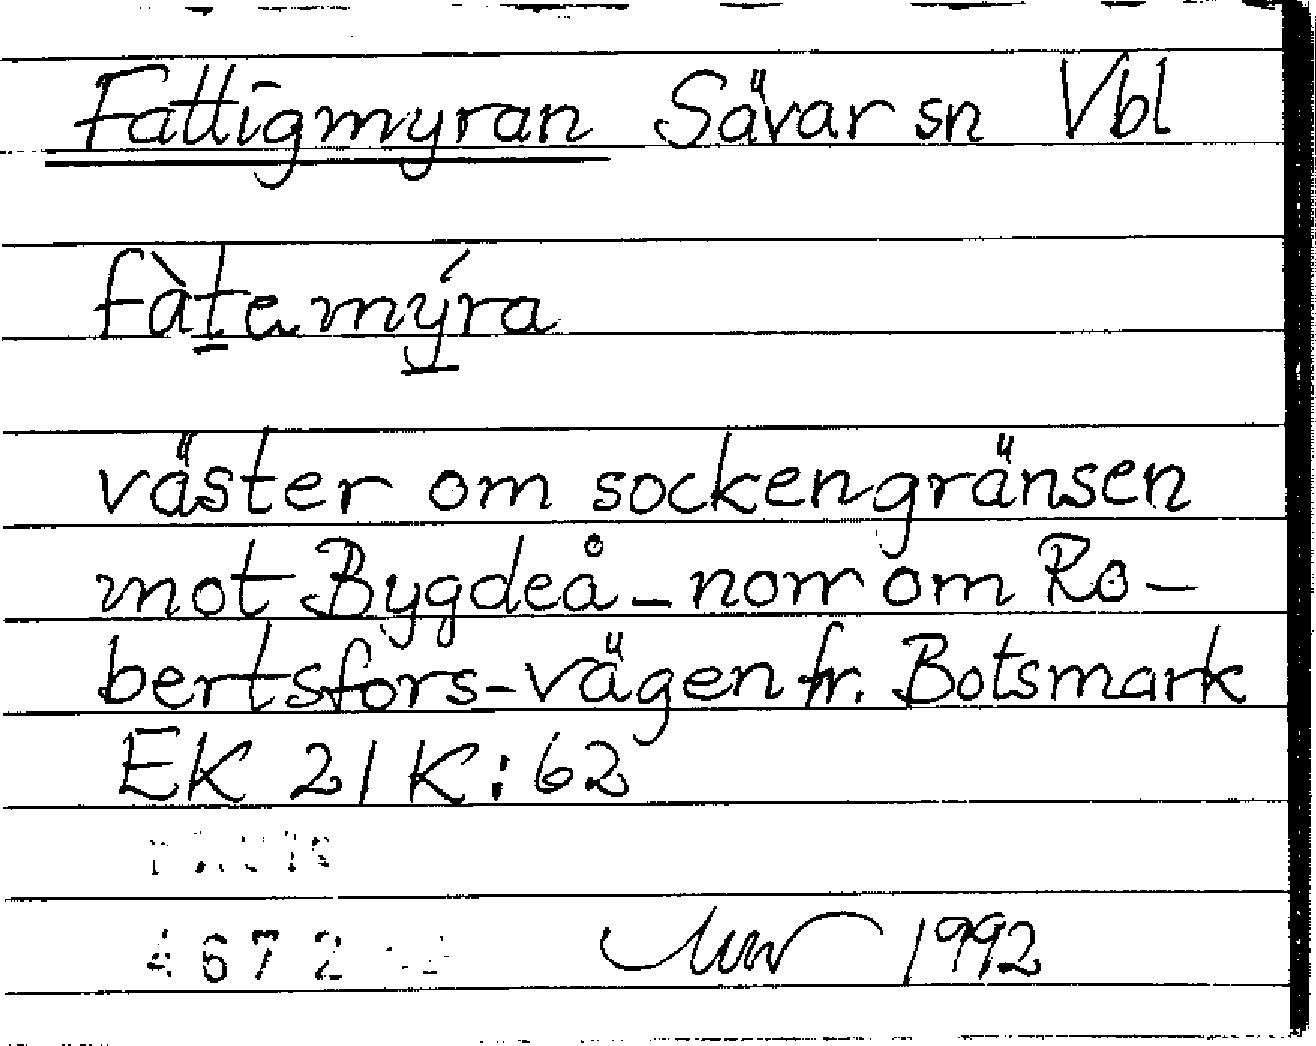 Fattigmyran Sävar sn Vbl
fàtemýra
väster om sockengränsen
mot Bygdeå - norr om Ro-
bertsfors-vägen fr. Botsmark
EK 21 K:62
4672
1992